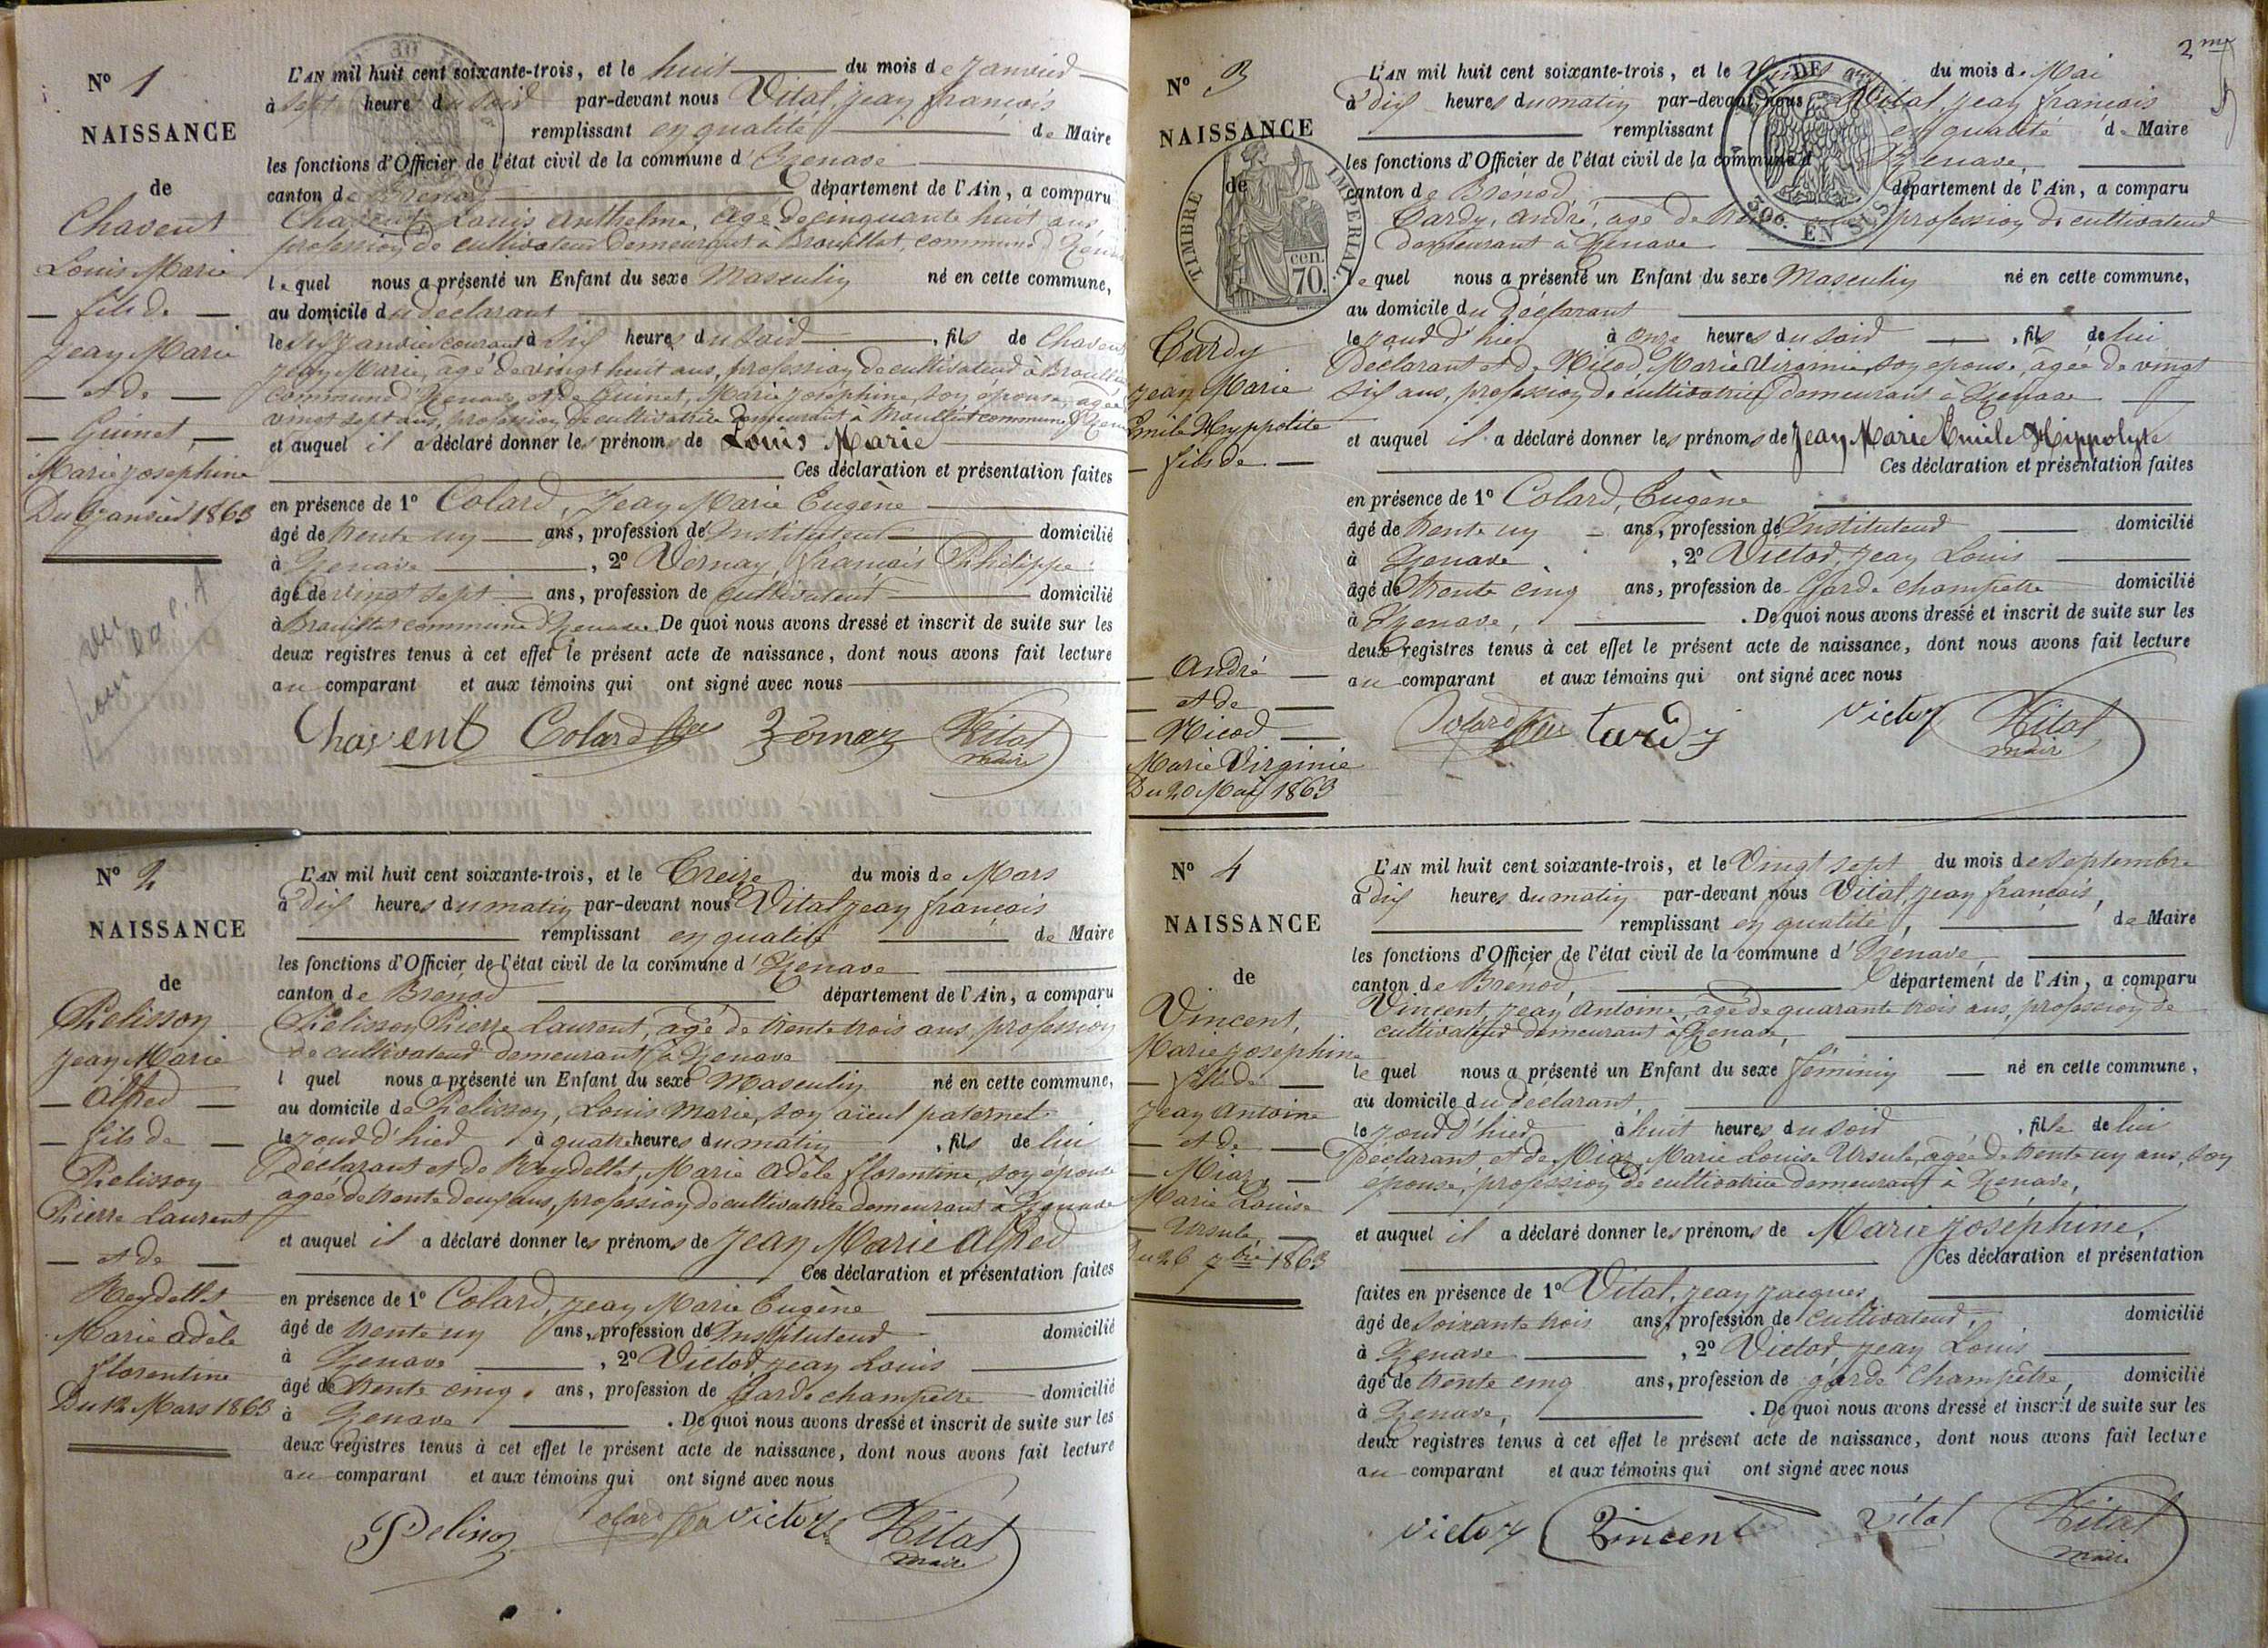 N° 1
NAISSANCE
de
Chavent
Louis Marie
fils de
Jean Marie
et de
Guinet
Marie Joséphine
Du 6 Janvier 1863
L'AN mil huit cent soixante-trois, et le huit du mois de Janvier
à sept heures du soir par-devant nous Vital, Jean François
remplissant en qualité de Maire
les fonctions d'Officier de l'état civil de la commune d'Izenave
canton de Brenod département de l'Ain, a comparu
Chavent, Louis Anthelme, âgé de cinquante huit ans,
profession de cultivateur demeurant à Brouillat, commune d'Izenave
lequel nous a présenté un Enfant du sexe Masculin né en cette commune,
au domicile du déclarant
le six Janvier courant à six heures du soir, fils de Chavent
Jean Marie, âgé de vingt huit ans, profession de cultivateur à Brouillat
commune d'Izenave, et de Guinet, Marie Joséphine, son épouse, agée
vingt sept ans, profession de cultivatrice demeurant à Brouillat commune d'Izenave
et auquel il a déclaré donner les prénoms de Louis Marie
Ces déclaration et présentation faites
en présence de 1° Colard, Jean Marie Eugène
âgé de trente un ans, profession de Instituteur domicilié
à Izenave, 2° Vernay, François Philippe
âgé de vingt sept ans, profession de cultivateur domicilié
à Brouillat commune d'Izenave. De quoi nous avons dressé et inscrit de suite sur les
deux registres tenus à cet effet le présent acte de naissance, dont nous avons fait lecture
au comparant et aux témoins qui ont signé avec nous
Chavent Colard Vital
maire
N° 2
NAISSANCE
de
Pelisson
Jean Marie
Alfred
fils de
Pelisson
Pierre Laurent
et de
Reydellet
Marie Adèle
florentine
Du 12 Mars 1863
L'AN mil huit cent soixante-trois, et le Treize du mois de Mars
à dix heures du matin par-devant nous Vital Jean François
remplissant en qualité de Maire
les fonctions d'Officier de l'état civil de la commune d'Izenave
canton de Brenod département de l'Ain, a comparu
Pelisson Pierre Laurent, âgé de trente trois ans, profession
de cultivateur demeurant à Izenave
l quel nous a présenté un Enfant du sexe Masculin né en cette commune,
au domicile de Pelisson, Louis Marie, son aïeul paternel
le jour d'hier à quatre heures du matin, fils de lui
déclarant et de Reydellet, Marie Adèle florentine, son épouse
agée de trente deux ans, profession de cultivatrice demeurant à Izenave
et auquel il a déclaré donner les prénoms de Jean Marie Alfred
Ces déclaration et présentation faites
en présence de 1° Colard, Jean Marie Eugène
âgé de trente un ans, profession de Instituteur domicilié
à Izenave, 2° Victor, Jean Louis
âgé de trente cinq ans, profession de Garde champêtre domicilié
à Izenave. De quoi nous avons dressé et inscrit de suite sur les
deux registres tenus à cet effet le présent acte de naissance, dont nous avons fait lecture
au comparant et aux témoins qui ont signé avec nous
Pelisson Colard Victor Vital
maire
2me
N° 3
NAISSANCE
de
TIMBRE IMPERIAL
cen.
70.
Tardy
Jean Marie
Emile Hyppolite
fils de
André
et de
Nicod
Marie Virginie
Du 20 Mai 1863
L'AN mil huit cent soixante-trois, et le Vingt un du mois de Mai
à dix heures du matin par-devant nous Vital, Jean François
remplissant en qualité de Maire
les fonctions d'Officier de l'état civil de la commune d'Izenave,
canton de Brenod département de l'Ain, a comparu
Tardy, André, agé de profession de cultivateur
demeurant à Izenave
lequel nous a présenté un Enfant du sexe Masculin né en cette commune,
au domicile du déclarant
le jour d'hier à onze heures du soir, fils de lui
Déclarant et de Nicod, Marie Virginie, son épouse, âgée de vingt
six ans, profession de cultivatrice demeurant à Izenave
et auquel il a déclaré donner les prénoms de Jean Marie Emile Hippolyte
Ces déclaration et présentation faites
en présence de 1° Colard, Eugène
âgé de trente un ans, profession de Instituteur domicilié
à Izenave, 2° Victor, Jean Louis
âgé de trente cinq ans, profession de Garde champetre domicilié
à Izenave, . De quoi nous avons dressé et inscrit de suite sur les
deux registres tenus à cet effet le présent acte de naissance, dont nous avons fait lecture
au comparant et aux témoins qui ont signé avec nous
Colard tardy Victor Vital
maire
N° 4
NAISSANCE
de
Vincent,
Marie Josephine
fille de
Jean Antoine
et de
Miaz,
Marie Louise
Ursule,
Du 26 7bre 1863
L'AN mil huit cent soixante-trois, et le Vingt sept du mois de septembre
à dix heures du matin par-devant nous Vital, Jean François,
remplissant en qualité, de Maire
les fonctions d'Officier de l'état civil de la commune d'Izenave,
canton de Brénod, département de l'Ain, a comparu
Vincent, Jean Antoine, âgé de quarante trois ans, profession de
cultivateur demeurant à Izenave,
lequel nous a présenté un Enfant du sexe féminin né en cette commune,
au domicile du déclarant,
le jour d'hier à huit heures du soir, fille de lui
Déclarant, et de Miaz, Marie Louise Ursule, agée de trente un ans, son
épouse, profession de cultivatrice demeurant à Izenave,
et auquel il a déclaré donner les prénoms de Marie Joséphine,
Ces déclaration et présentation
faites en présence de 1° Vital, Jean Jacques,
âgé de soixante trois ans, profession de cultivateur, domicilié
à Izenave, 2° Victor, Jean Louis
âgé de trente cinq ans, profession de garde Champêtre, domicilié
à Izenave, . De quoi nous avons dressé et inscrit de suite sur les
deux registres tenus à cet effet le présent acte de naissance, dont nous avons fait lecture
au comparant et aux témoins qui ont signé avec nous
Victor Vincent Vital Vital
maire